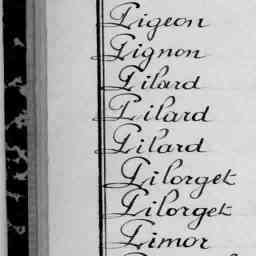 Pigeon
Pignon
Pilard
Pilard
Pilard
Pilorget
Pilorget
Pimor